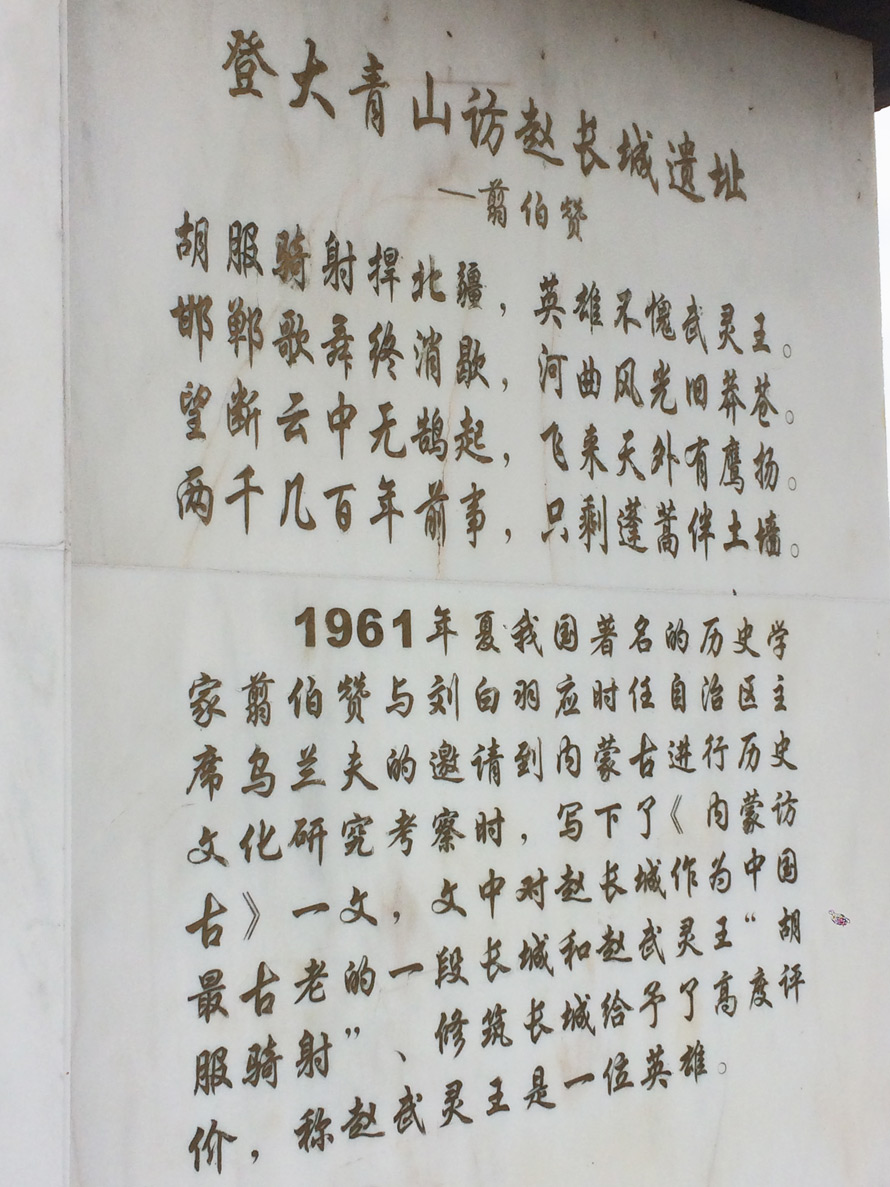 登大青山访赵长城遗址
—翦伯赞
胡服骑射捍北疆，英雄不愧武灵王。
邯郸歌舞终消歇，河曲风光旧莽苍。
望断云中无鹄起，飞来天外有鹰扬。
两千几百年前事，只剩蓬蒿伴土墙。
1961年夏我国著名的历史学
家翦伯赞与刘白羽应时任自治区主
席乌兰夫的邀请到内蒙古进行历史
文化研究考察时，写下了《内蒙访
古》一文，文中对赵长城作为中国
最古老的一段长城和赵武灵王“胡
服骑射”、修筑长城给予了高度评
价，称赵武灵王是一位英雄。